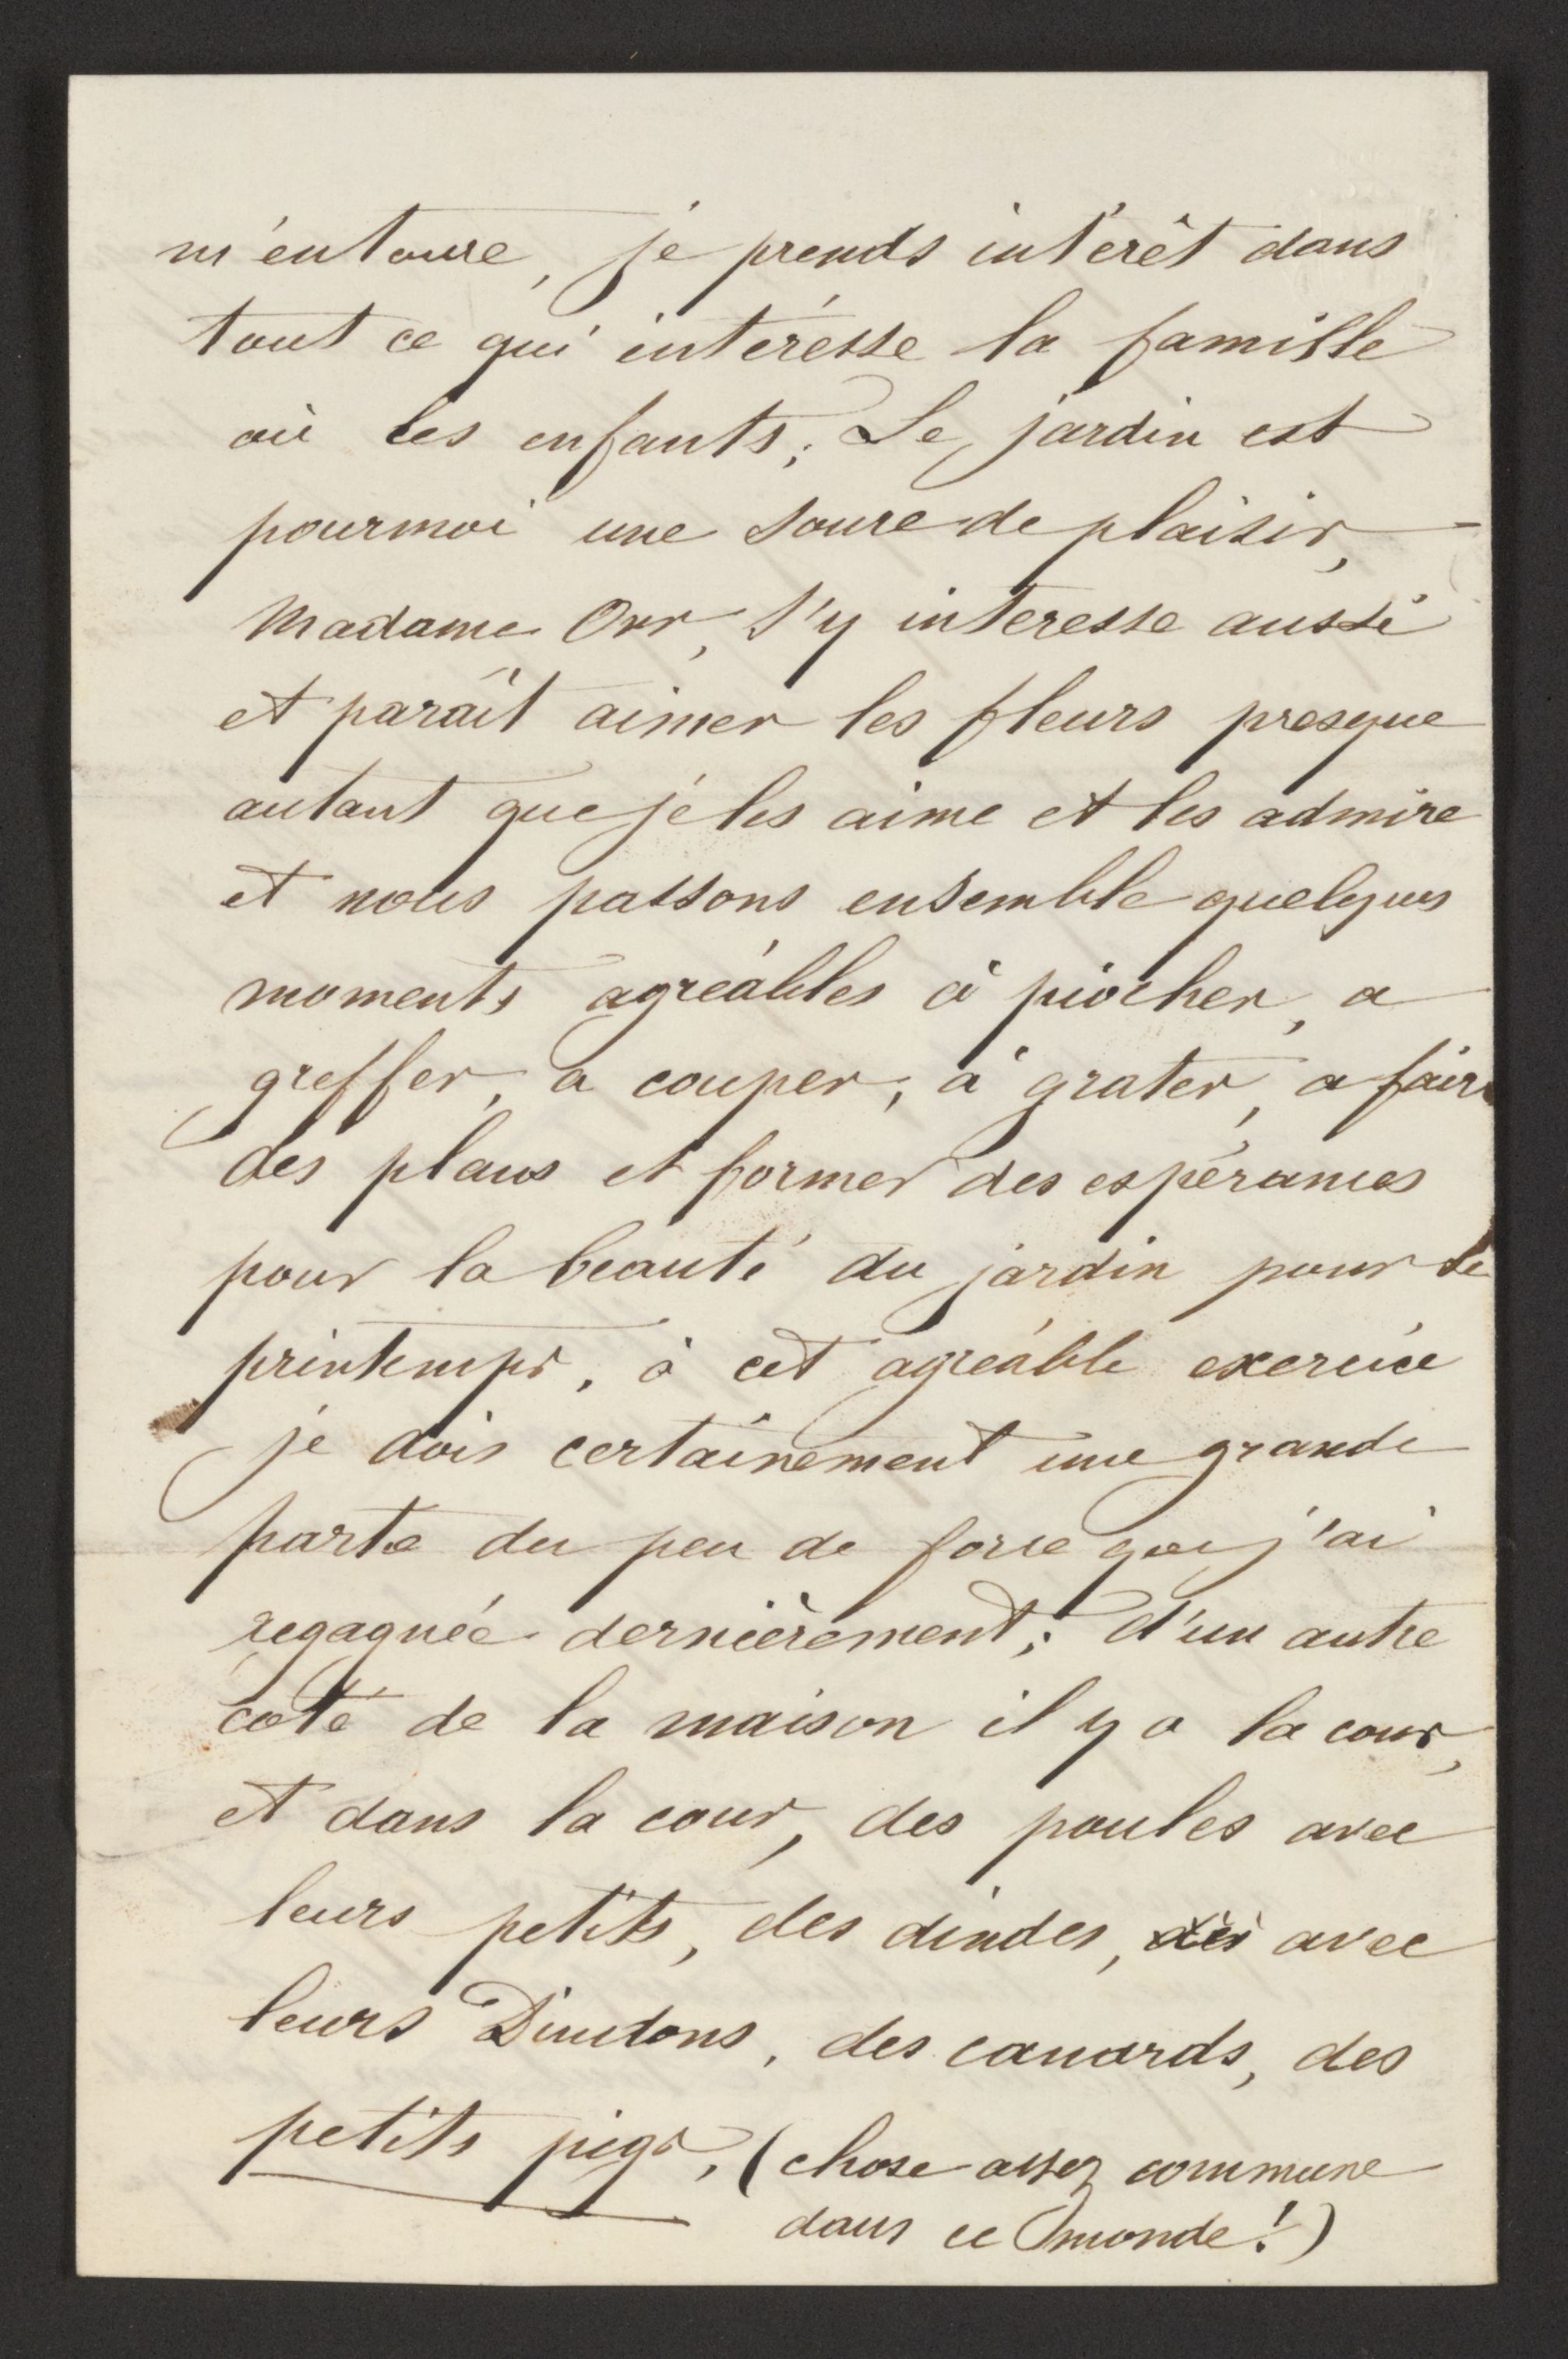 m'entoure, je prends intérêt dans
tout ce qui intéresse la famille
où les enfants; Le jardin est
pourmoi une soure de plaisir,
Madame Orr, s'y interesse aussi
et paraît aimer les fleurs presque
autant que je les aime et les admire
et nous passons ensemble quelques
moments agréables à piocher, a
greffer, a couper, à grater, a faire
des plans et former des espérances
pour la beauté du jardin pour le
printemps, à cet agréable exercice
je dois certainement une grande
partie du peu de force que j'ai
regagnée dernièrement; d'un autre
coté de la maison il y a la cour,
et dans la cour, des poules avec
leurs petits, des dindes, des avec
leurs Dindons, des canards, des
petits pigs, (chose assez commune
dans ce monde!)